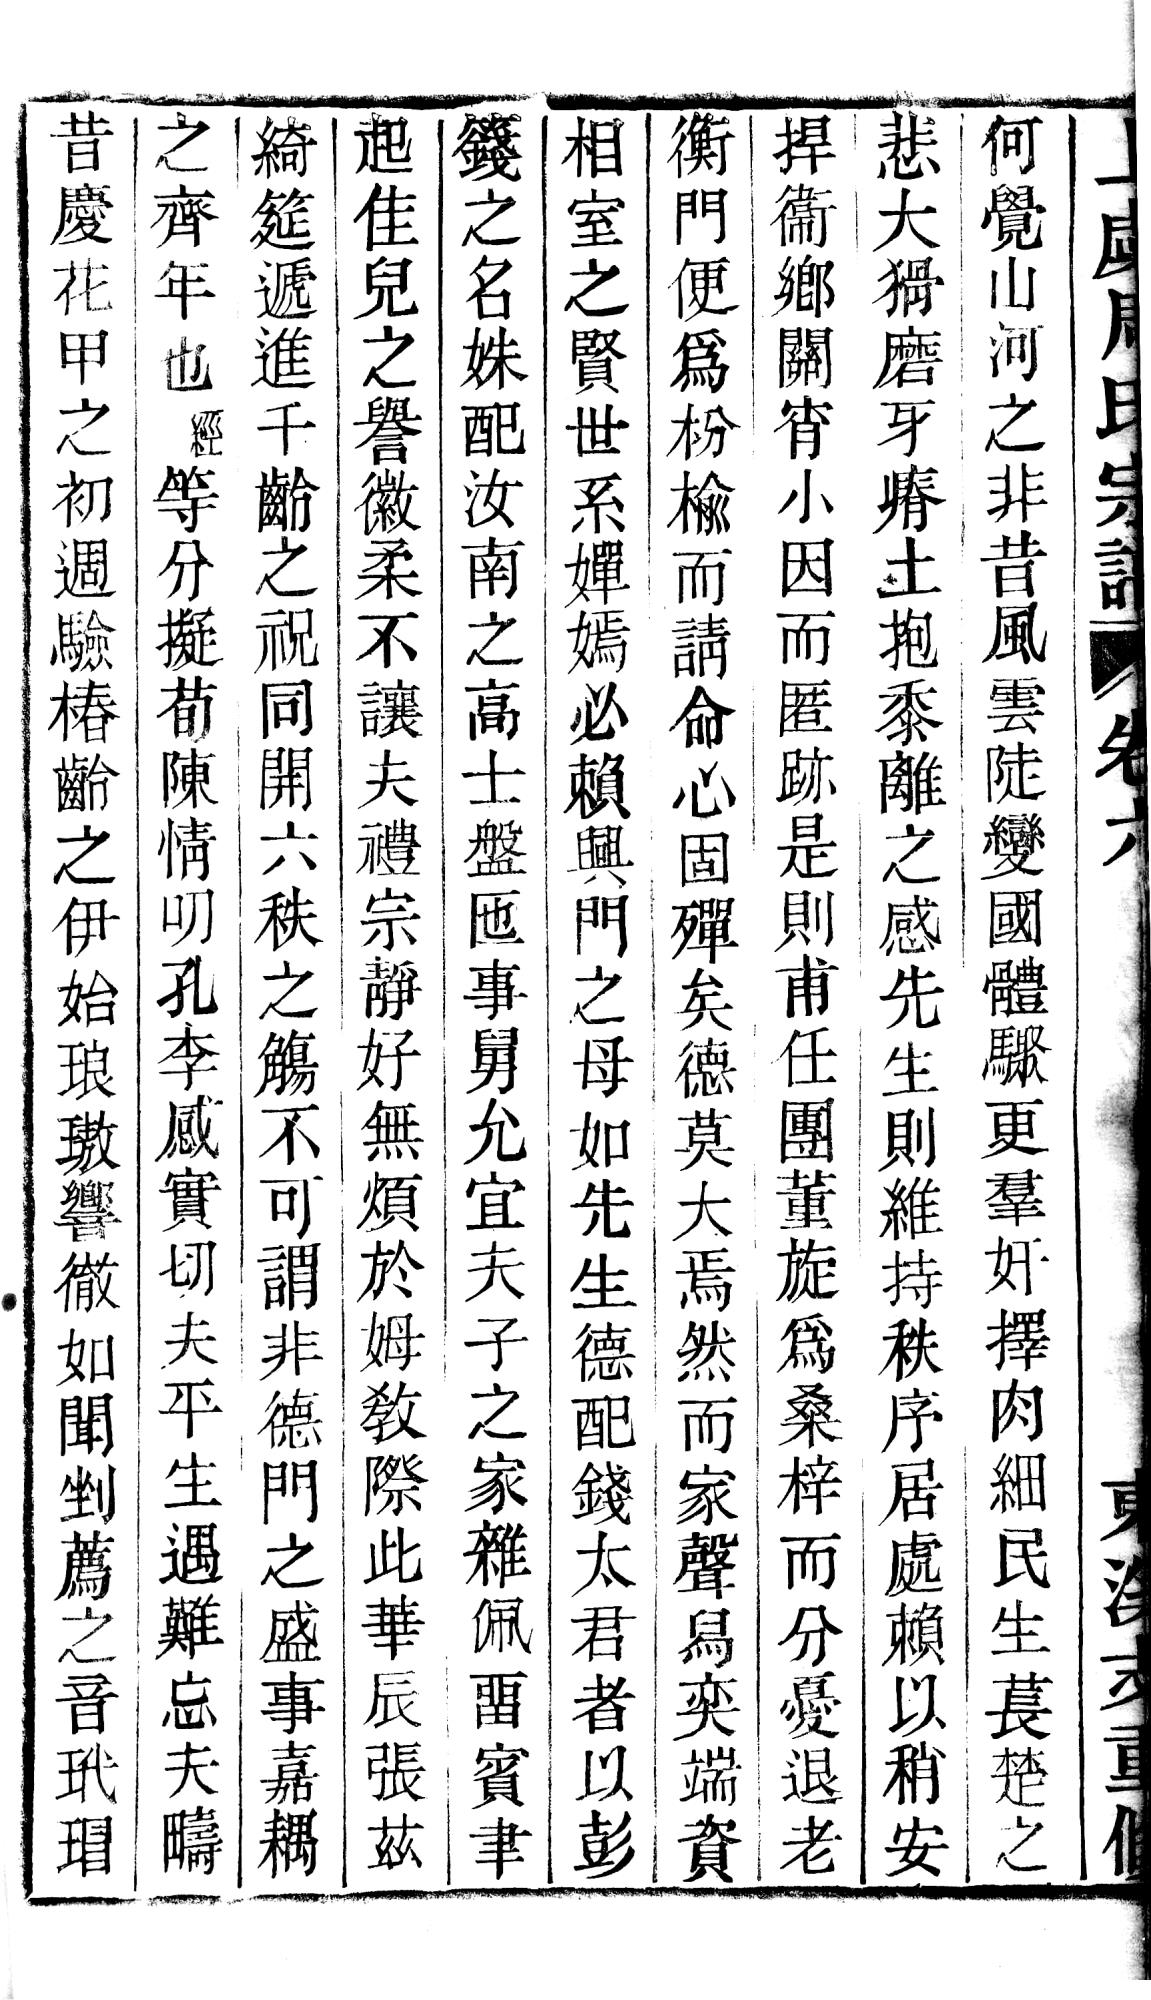 上虞周氏宗譜 卷六 東溪支重修
何覺山河之非昔風雲陡變國體驟更羣奸擇肉細民生萇楚之
悲大猾磨牙瘠土抱黍離之感先生則維持秩序居處賴以稍安
捍衞鄉關宵小因而匿跡是則甫任團董旋爲桑梓而分憂退老
衡門便爲枌榆而請命心固殫矣德莫大焉然而家聲舄奕端資
相室之賢世系嬋嫣必賴興門之母如先生德配錢太君者以彭
籛之名姝配汝南之高士盤匜事舅允宜夫子之家雜佩畱賓聿
起佳兒之譽徽柔不讓夫禮宗靜好無煩於姆教際此華辰張茲
綺筵遞進千齡之祝同開六秩之觴不可謂非德門之盛事嘉耦
之齊年也經等分擬荀陳情叨孔李感實切夫平生遇難忘夫疇
昔慶花甲之初週驗椿齡之伊始琅璈響徹如聞剉薦之音玳瑁